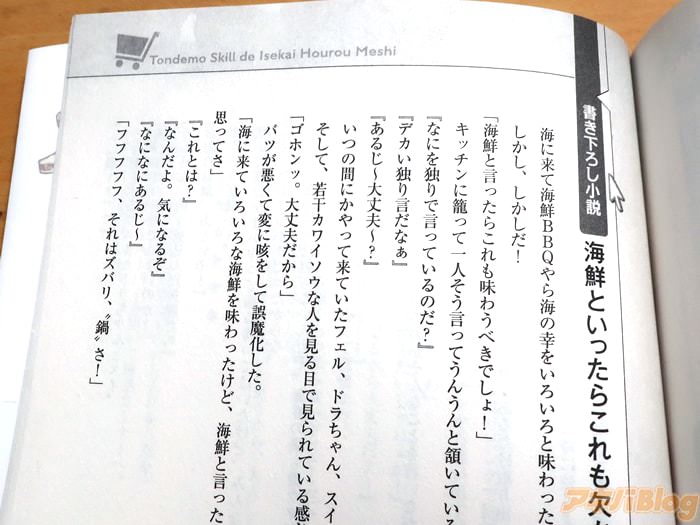 Tondemo Skill de Isekai Hourou Meshi
書き下ろし小説
海鮮といったらこれも欠
海に来て海鮮BBQやら海の幸をいろいろと味わった
しかし、しかしだ！
「海鮮と言ったらこれも味わうべきでしょ！」
キッチンに籠って一人そう言ってうんうんと頷いている
『なにを独りで言っているのだ？』
『デカい独り言だなぁ』
『あるじ～大丈夫～？』
いつの間にかやって来ていたフェル、ドラちゃん、スイ
そして、若干カワイソウな人を見る目で見られている感
「ゴホンッ。大丈夫だから」
バツが悪くて変に咳をして誤魔化した。
「海に来ていろいろな海鮮を味わったけど、海鮮と言った
思ってさ」
『これとは？』
『なんだよ。気になるぞ』
『なになにあるじ～』
「フフフフフ、それはズバリ、〝鍋〟さ！」
アキバBlog